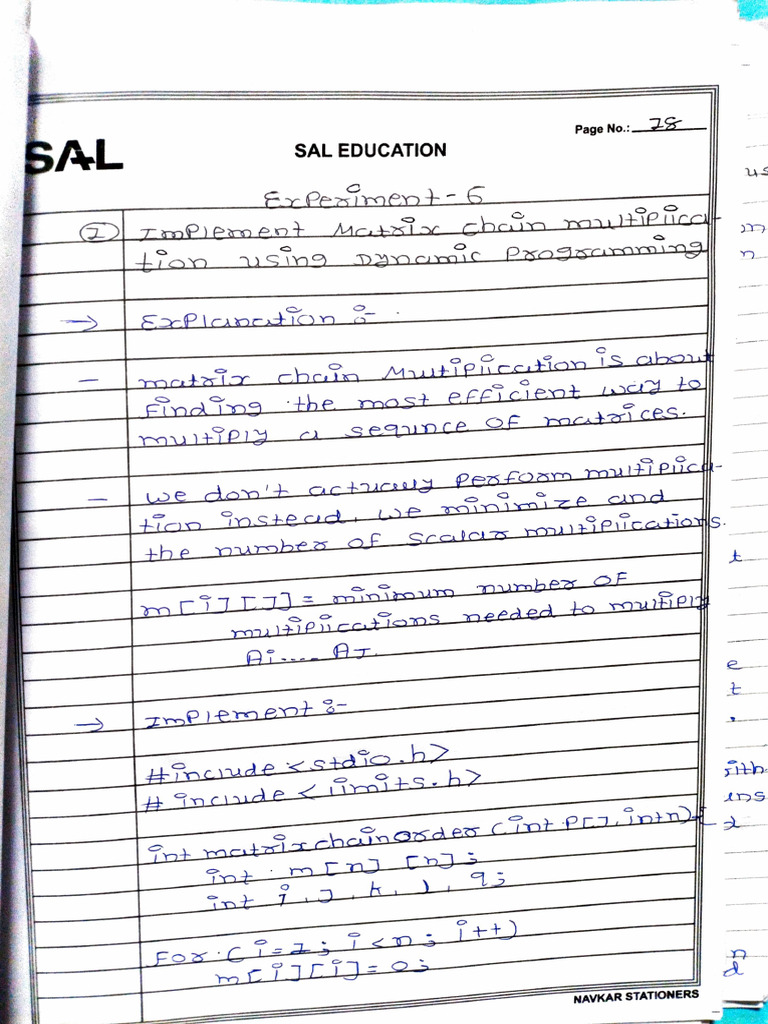 Page No.: 78
SAL
SAL EDUCATION
Experiment - 6
① Implement Matrix chain multiplica-
tion using Dynamic Programming
→ Explanation :-
- matrix chain Multiplication is about
finding the most efficient way to
multiply a sequnce of matrices.
- we don't actually perform multiplica-
tion instead, we minimize and
the number of scalar multiplications.
m[i][J] = minimum number of
multiplications needed to multiply
Ai.... AJ.
→ Implement :-
#include <stdio.h>
# include <limits.h>
int matrixchainorder (int P[], int n) {
int m[n] [n];
int i, J, k, l, q;
For (i=1; i<n; i++)
m[i][i]=0;
NAVKAR STATIONERS